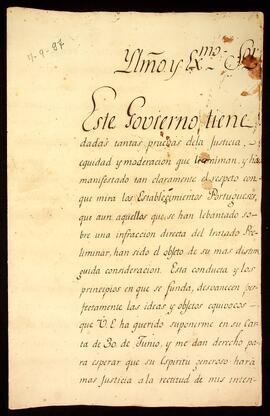 11-9-87
Yllmo. y Exmo. Sor.
Este Govierno tiene
dadas tantas pruebas de la Justicia,
equidad y moderacion que le animan, y ha
manifestado tan claramente el respeto con
que mira los Establecimientos Portugueses,
que aun aquellos que se han lebantado so-
bre una infraccion directa del tratado Pre-
liminar, han sido el objeto de su mas distin-
guida consideracion. Esta conducta y los
principios en que se funda, desvanecen per-
fectamente las ideas y objetos equivocos
que V.E. ha querido suponerme en su Car-
ta de 30 de Junio, y me dan derecho pa-
ra esperar que su Espiritu generoso hará
mas Justicia á la rectitud de mis inten-